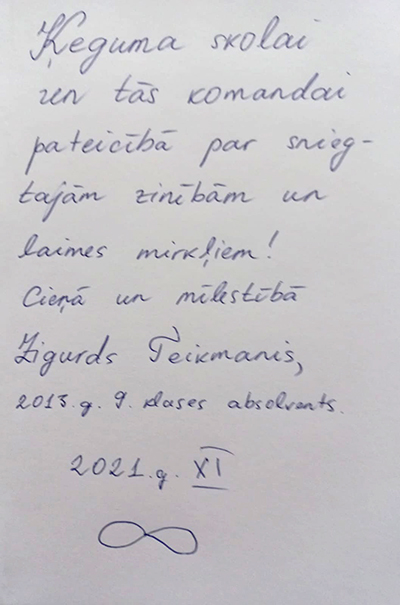 Ķeguma skolai
un tās komandai
pateicībā par snieg-
tajām zinībām un
laimes mirkļiem!
Cieņā un mīlestībā
Zigurds Teikmanis,
2013.g. 9. klases absolvents.
2021.g. XI